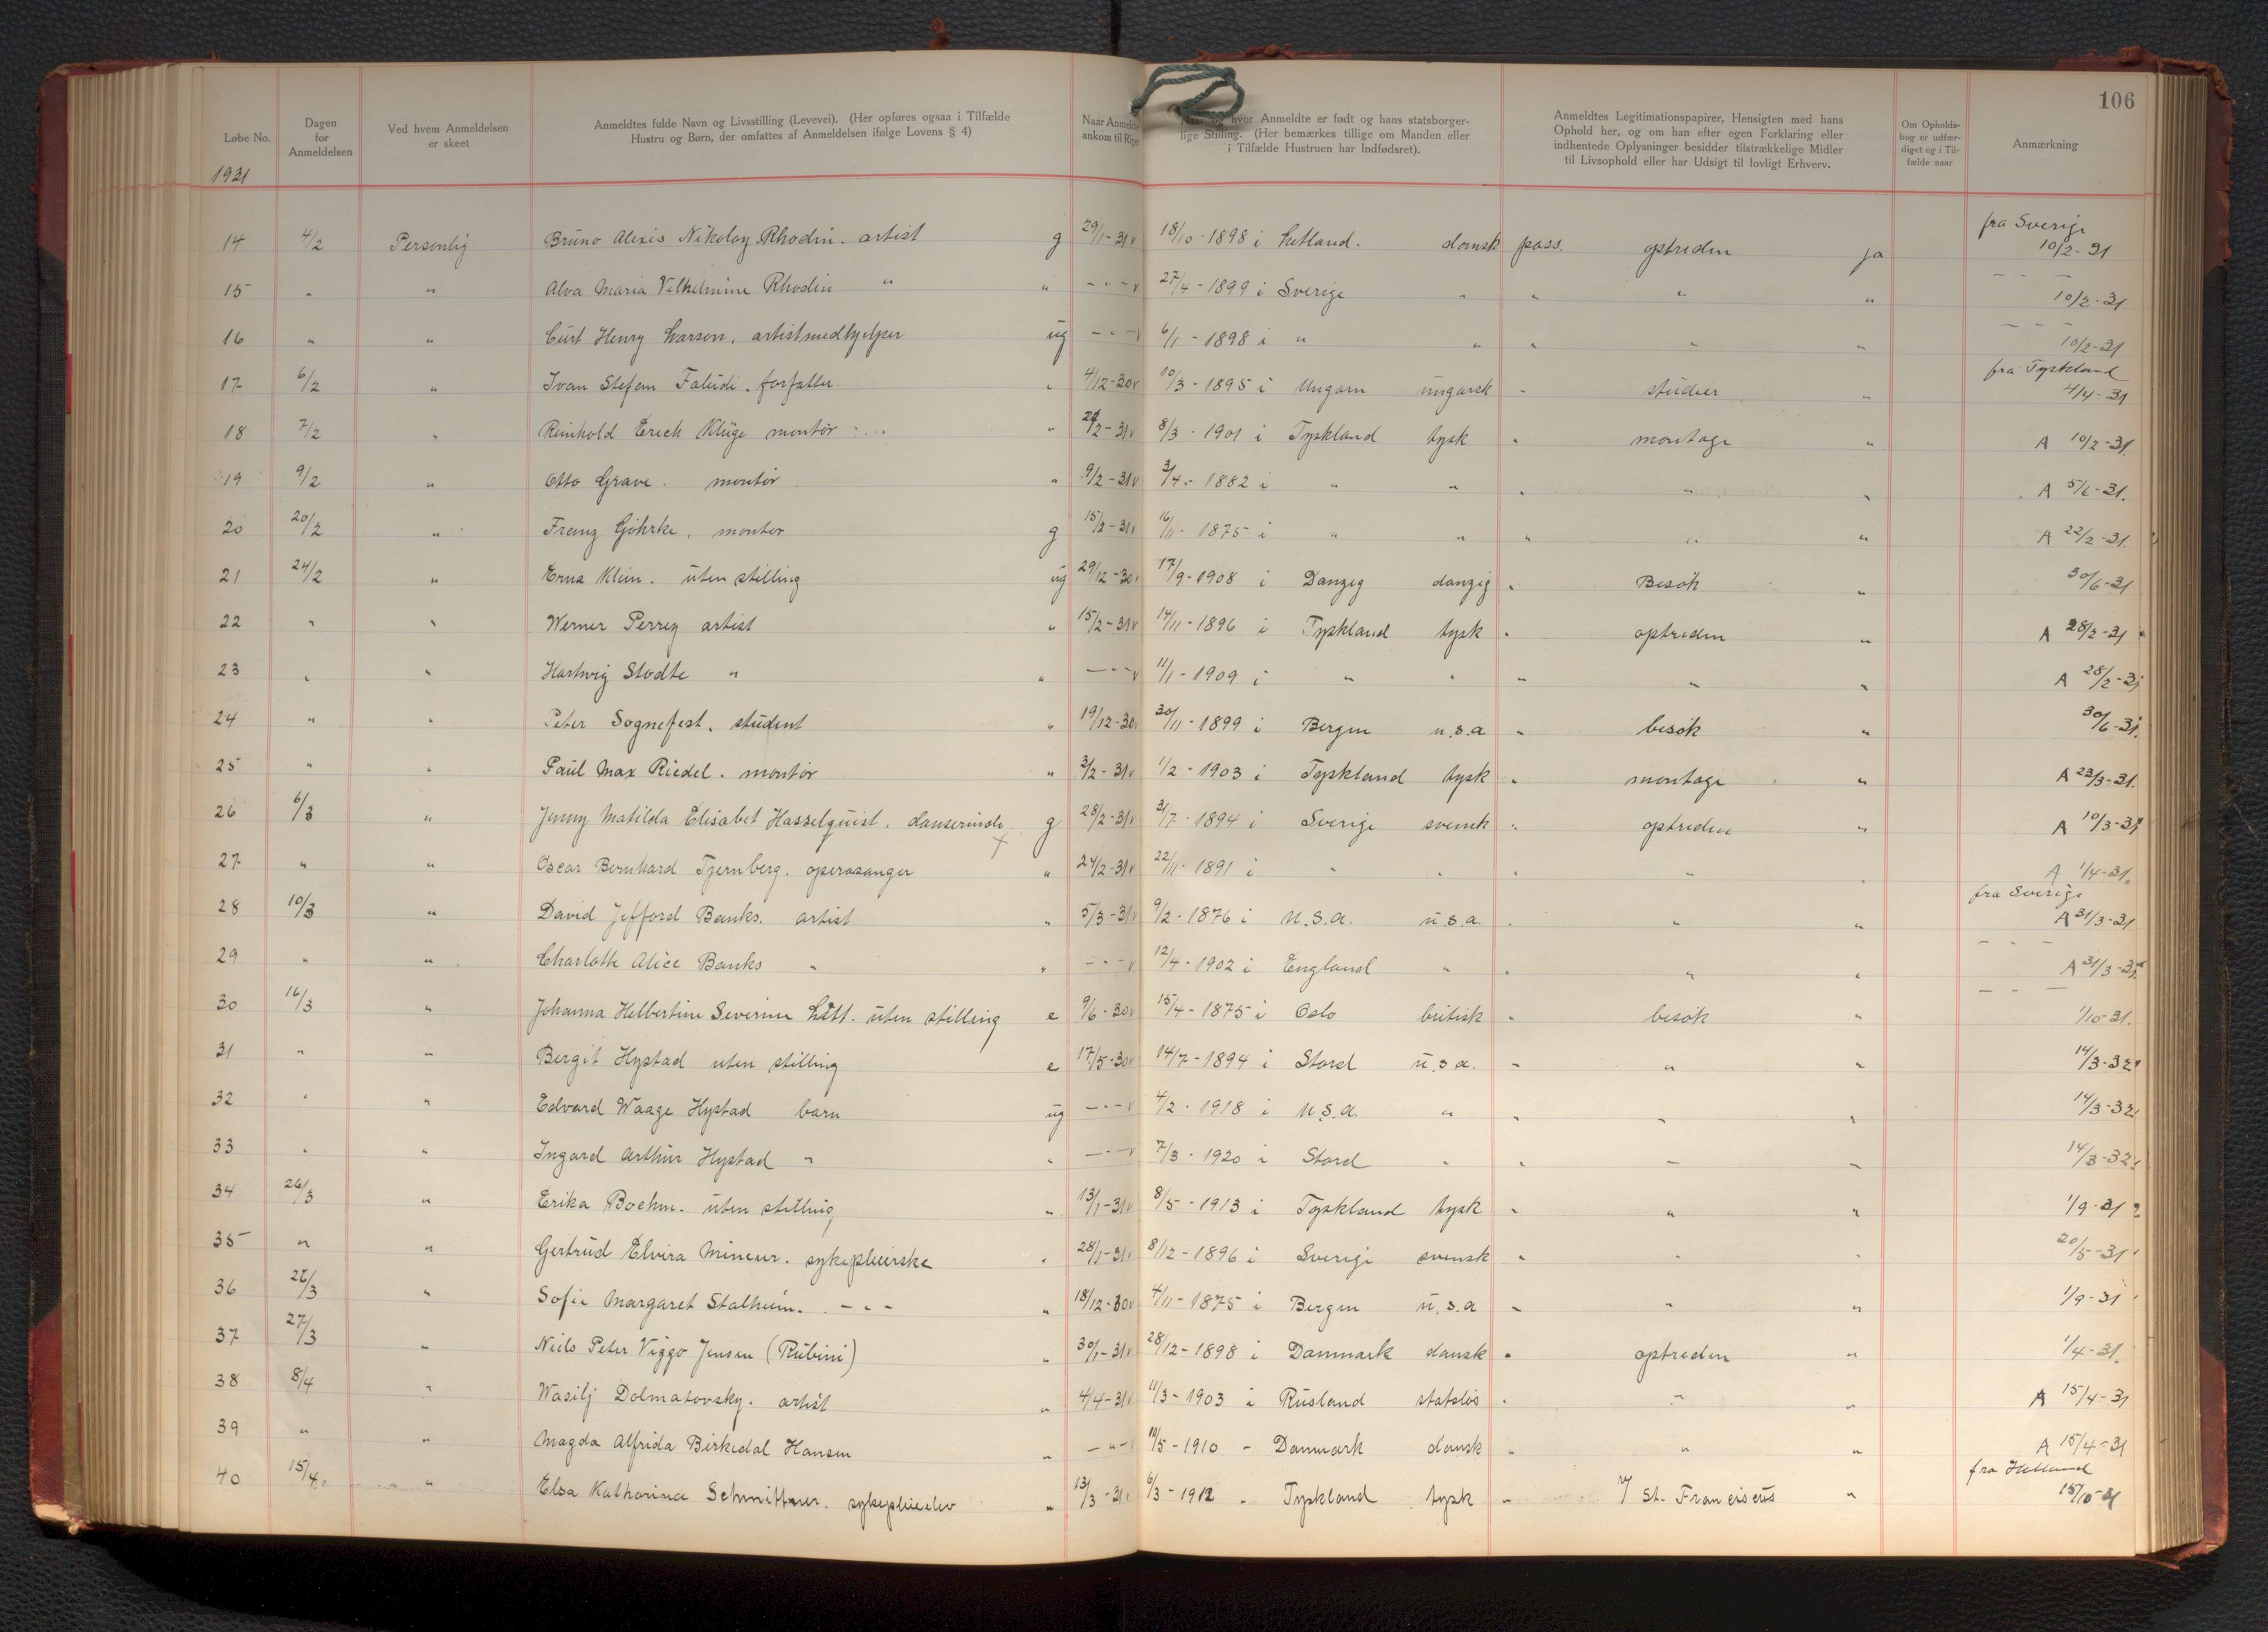 106
Løbe No. Dagen for Anmeldelsen Ved hvem Anmeldelsen er skeet Anmeldtes fulde Navn og Livsstilling (Levevei). (Her opføres ogsaa i Tilfælde Hustru og Børn, der omfattes af Anmeldelsen ifølge Lovens § 4) Naar Anmeldte ankom til Riget Naar og hvor Anmeldte er født og hans statsborgerlige Stilling. (Her bemærkes tillige om Manden eller i Tilfælde Hustruen har Indfødsret). Anmeldtes Legitimationspapirer, Hensigten med hans Ophold her, og om han efter egen Forklaring eller indhentede Oplysninger besidder tilstrækkelige Midler til Livsophold eller har Udsigt til lovligt Erhverv. Om Opholdsbog er udfærdiget og i Tilfælde naar Anmærkning
1931
14 4/2 Personlig Bruno Alexis Nikolay Rhodin. artist g 29/1-31 v 18/10-1898 i Letland. dansk pass. optreden ja fra Sverige 10/2-31
15 " " Alva Maria Vilhelmine Rhodin " " - " - v 27/4-1899 i Sverige " " " " - - - 10/2-31
16 " " Curt Henry Larson, artistmedhjelper ug - " - v 6/1-1898 i " " " " " - - - 10/2-31
17 6/2 " Ivan Stefem Faludi. forfatter " 4/12-30 v 10/3-1895 i Ungarn ungarsk " studier " fra Tyskland 4/4-31
18 7/2 " Reinhold Erich Kluge montør " 2/2-31 v 8/3-1901 i Tyskland tysk " montage " A 10/2-31.
19 9/2 " Otto Grave. montør " 9/2-31 v 3/4-1882 i " " " " " A 5/6-31.
20 20/2 " Franz Göhrke, montør g 15/2-31 v 16/11-1875 i " " " " " A 22/2-31.
21 24/2 " Erna Klein. uten stilling ug 29/12-30 v 17/9-1908 i Danzig danzig " Besøk " 30/6-31
22 " " Werner Perrey artist " 15/2-31 v 14/11-1896 i Tyskland tysk " optreden " A 28/2-31
23 " " Hartwig Stodte " " - " - v 11/1-1909 i " " " " " A 28/2-31
24 " " Peter Sognefest. student " 19/12-30 30/11-1899 i Bergen u.s.a " besøk " 30/6-31.
25 " " Paul Max Riedel. montør " 3/2-31 v 1/2-1903 i Tyskland tysk " montage " A 23/3-31.
26 6/3 " Jenny Matilda Elisabet Hasselquist. danserinde g 28/2-31 v 31/7-1894 i Sverige svensk " optreden " A 10/3-31
27 " " Oscar Bernhard Tjernberg. operasanger " 24/2-31 v 22/11-1891 i " " " " " A 1/4-31.
28 10/3 " David Jefford Banks. artist " 5/3-31 v 9/2-1876 i U.S.A. u.s.a. " " " fra Sverige A 31/3-31
29 " " Charlotte Alice Banks " " - " - v 12/4-1902 i England " " " " - - - A 31/3-31
30 16/3 " Johanna Helbertine Severine Litt. uten stilling e 9/6-30 v 15/4-1875 i Oslo britisk " besøk " - - - 1/10-31.
31 " " Bergit Hystad uten stilling e 17/5-30 v 14/7-1894 i Stord u.s.a. " " " 14/3-32
32 " " Edvard Waage Hystad barn ug - " - v 4/2-1918 i U.S.A. " " " " 14/3-32
33 " " Ingard Arthur Hystad " " - " - v 7/3-1920 i Stord " " " " 14/3-32
34 26/3 " Erika Boehm. uten stilling " 13/1-31 v 8/5-1913 i Tyskland tysk " " " 1/9-31
35 " " Gertrud Elvira Mineur. sykepleierske " 28/1-31 v 8/12-1896 i Sverige svensk " " " 20/5-31
36 26/3 " Sofie Margaret Stalheim. - " - " 18/12-30 v 4/11-1875 i Bergen u.s.a " " " 1/9-31
37 27/3 " Niels Peter Viggo Jensen (Rubini) " 30/1-31 v 28/12-1898 i Danmark dansk " optreden " 1/4-31.
38 8/4 " Wasilj Dolmatovsky. artist " 4/4-31 v 11/3-1903 i Rusland statsløs " " " A 15/4-31
39 " " Magda Alfrida Birkedal Hansen " - " - v 10/5-1910 - Danmark dansk " " " A 15/4-31
40 15/4 " Elsa Katharina Schmittner. sykepleieelev " 13/3-31 v 6/3-1912 " Tyskland tysk " v/ St. Franciscus " fra Holland 15/10-31